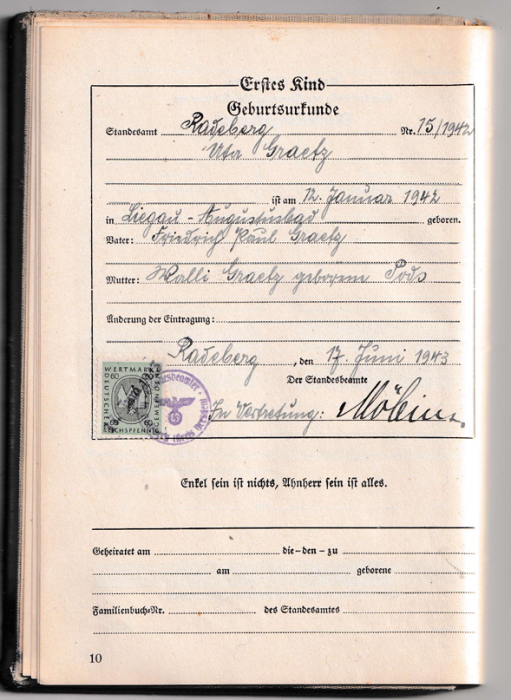 Erstes Kind
Geburtsurkunde
Standesamt Radeberg Nr. 15/1942
Uta Graetz
ist am 12. Januar 1942
in Liegau-Augustusbad geboren.
Vater: Friedrich Paul Graetz
Mutter: Walli Graetz geborene
Änderung der Eintragung:
Radeberg, den 17. Juni 1943
Der Standesbeamte
In Vertretung:
WERTMARKE
60 60
DEUTSCHER GEMEINDETAG
REICHSPFENNIG
60 60
Enkel sein ist nichts, Ahnherr sein ist alles.
Geheiratet am die-den-zu
am geborene
Familienbuch-Nr. des Standesamtes
10